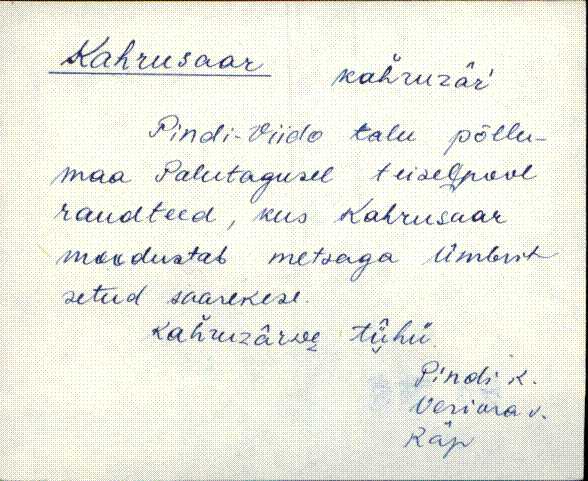 Kahrusaar kah̆ruzâr'
Pindi-Viido talu põllu-
maa Palutagusel teiselpool
raudteed, kus Kahrusaar
moodustab metsaga ümbrit
setud saarekese.
kah̆ruzârve tühü
Pindi k.
Veriora v.
Räp